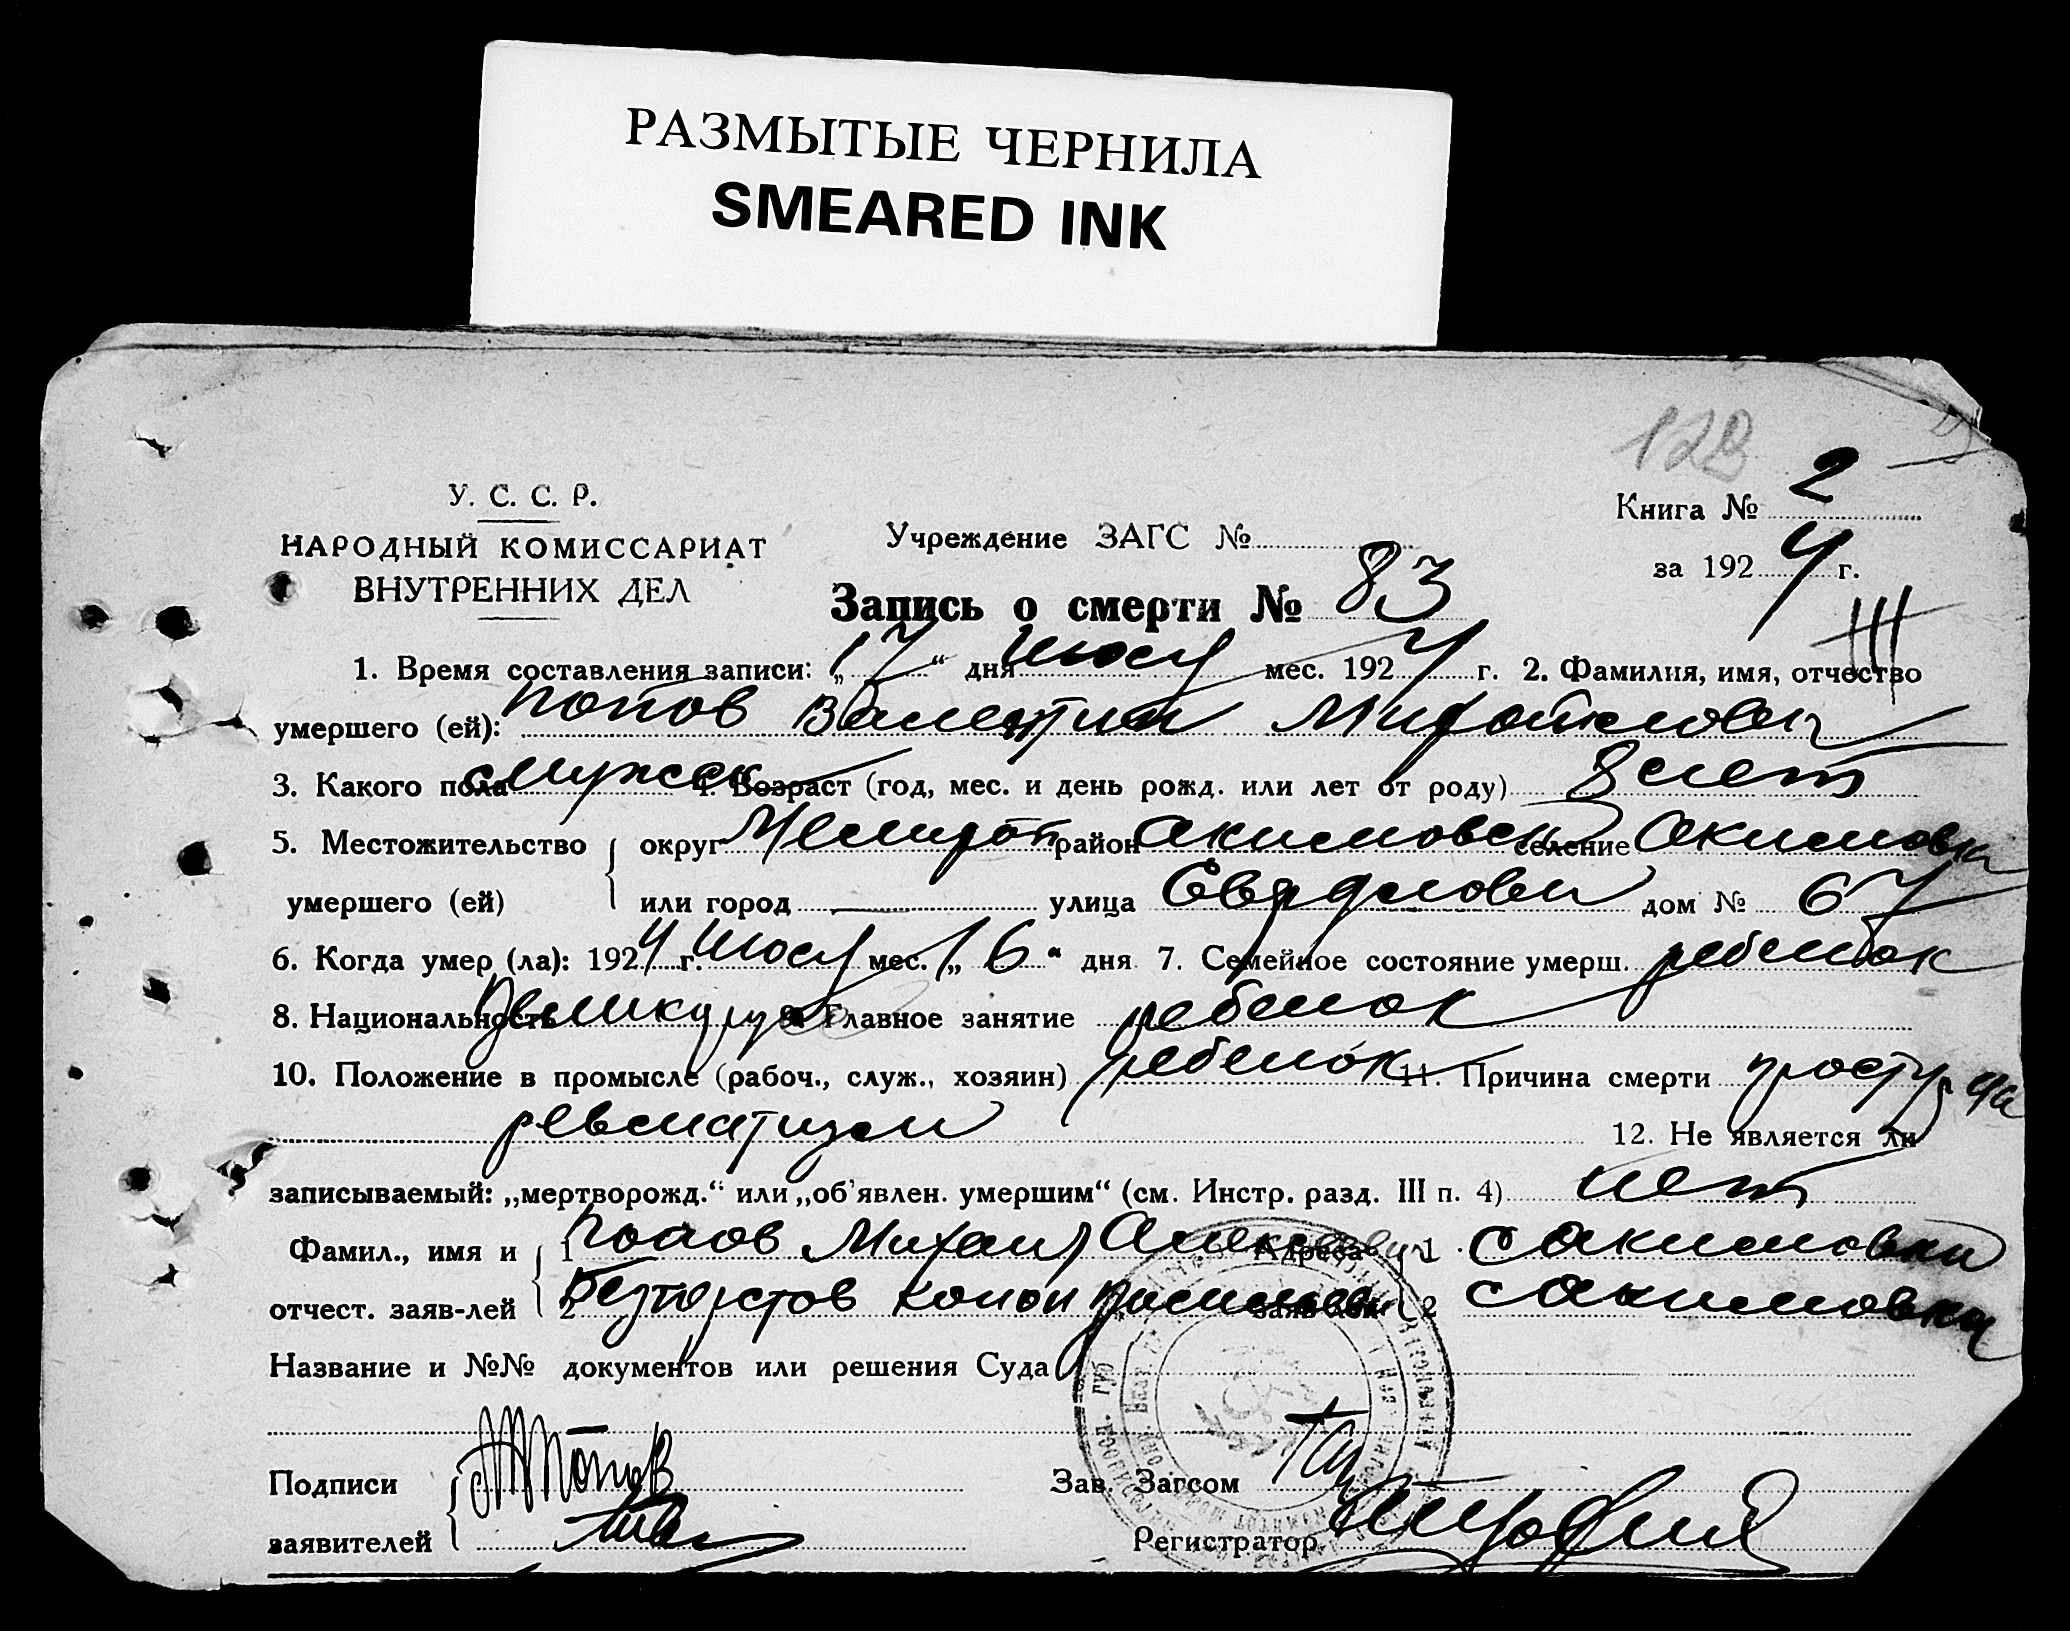 РАЗМЫТЫЕ ЧЕРНИЛА
SMEARED INK
128
У. С. С. Р.
НАРОДНЫЙ КОМИССАРИАТ
ВНУТРЕННИХ ДЕЛ
Учреждение ЗАГС №
Книга № 2
за 1924 г.
Запись о смерти № 83
III
1. Время составления записи: „17“ дня июля мес. 1924 г. 2. Фамилия, имя, отчество
умершего (ей): Попов Валентин Михайлович
3. Какого пола мужск 4. Возраст (год, мес. и день рожд. или лет от роду) 8 лет
5. Местожительство умершего (ей) { округ Мелитоп район Акимовск селение Акимовка
или город — улица Свердлова дом № 67
6. Когда умер (ла): 1924 г. июля мес. „16“ дня 7. Семейное состояние умерш. ребенок
8. Национальность 9. Главное занятие ребенок
10. Положение в промысле (рабоч., служ., хозяин) ребенок 11. Причина смерти простуда
ревматизм 12. Не является ли
записываемый: „мертворожд.“ или „об'явлен. умершим“ (см. Инстр. разд. III п. 4) нет
Фамил., имя и { 1 Попов Михаил Алексеевич Адреса { 1 с Акимовка
отчест. заяв-лей { 2 заяв-лей { 2 с Акимовка
Название и №№ документов или решения Суда
Подписи { Попов Зав. Загсом
заявителей { Регистратор